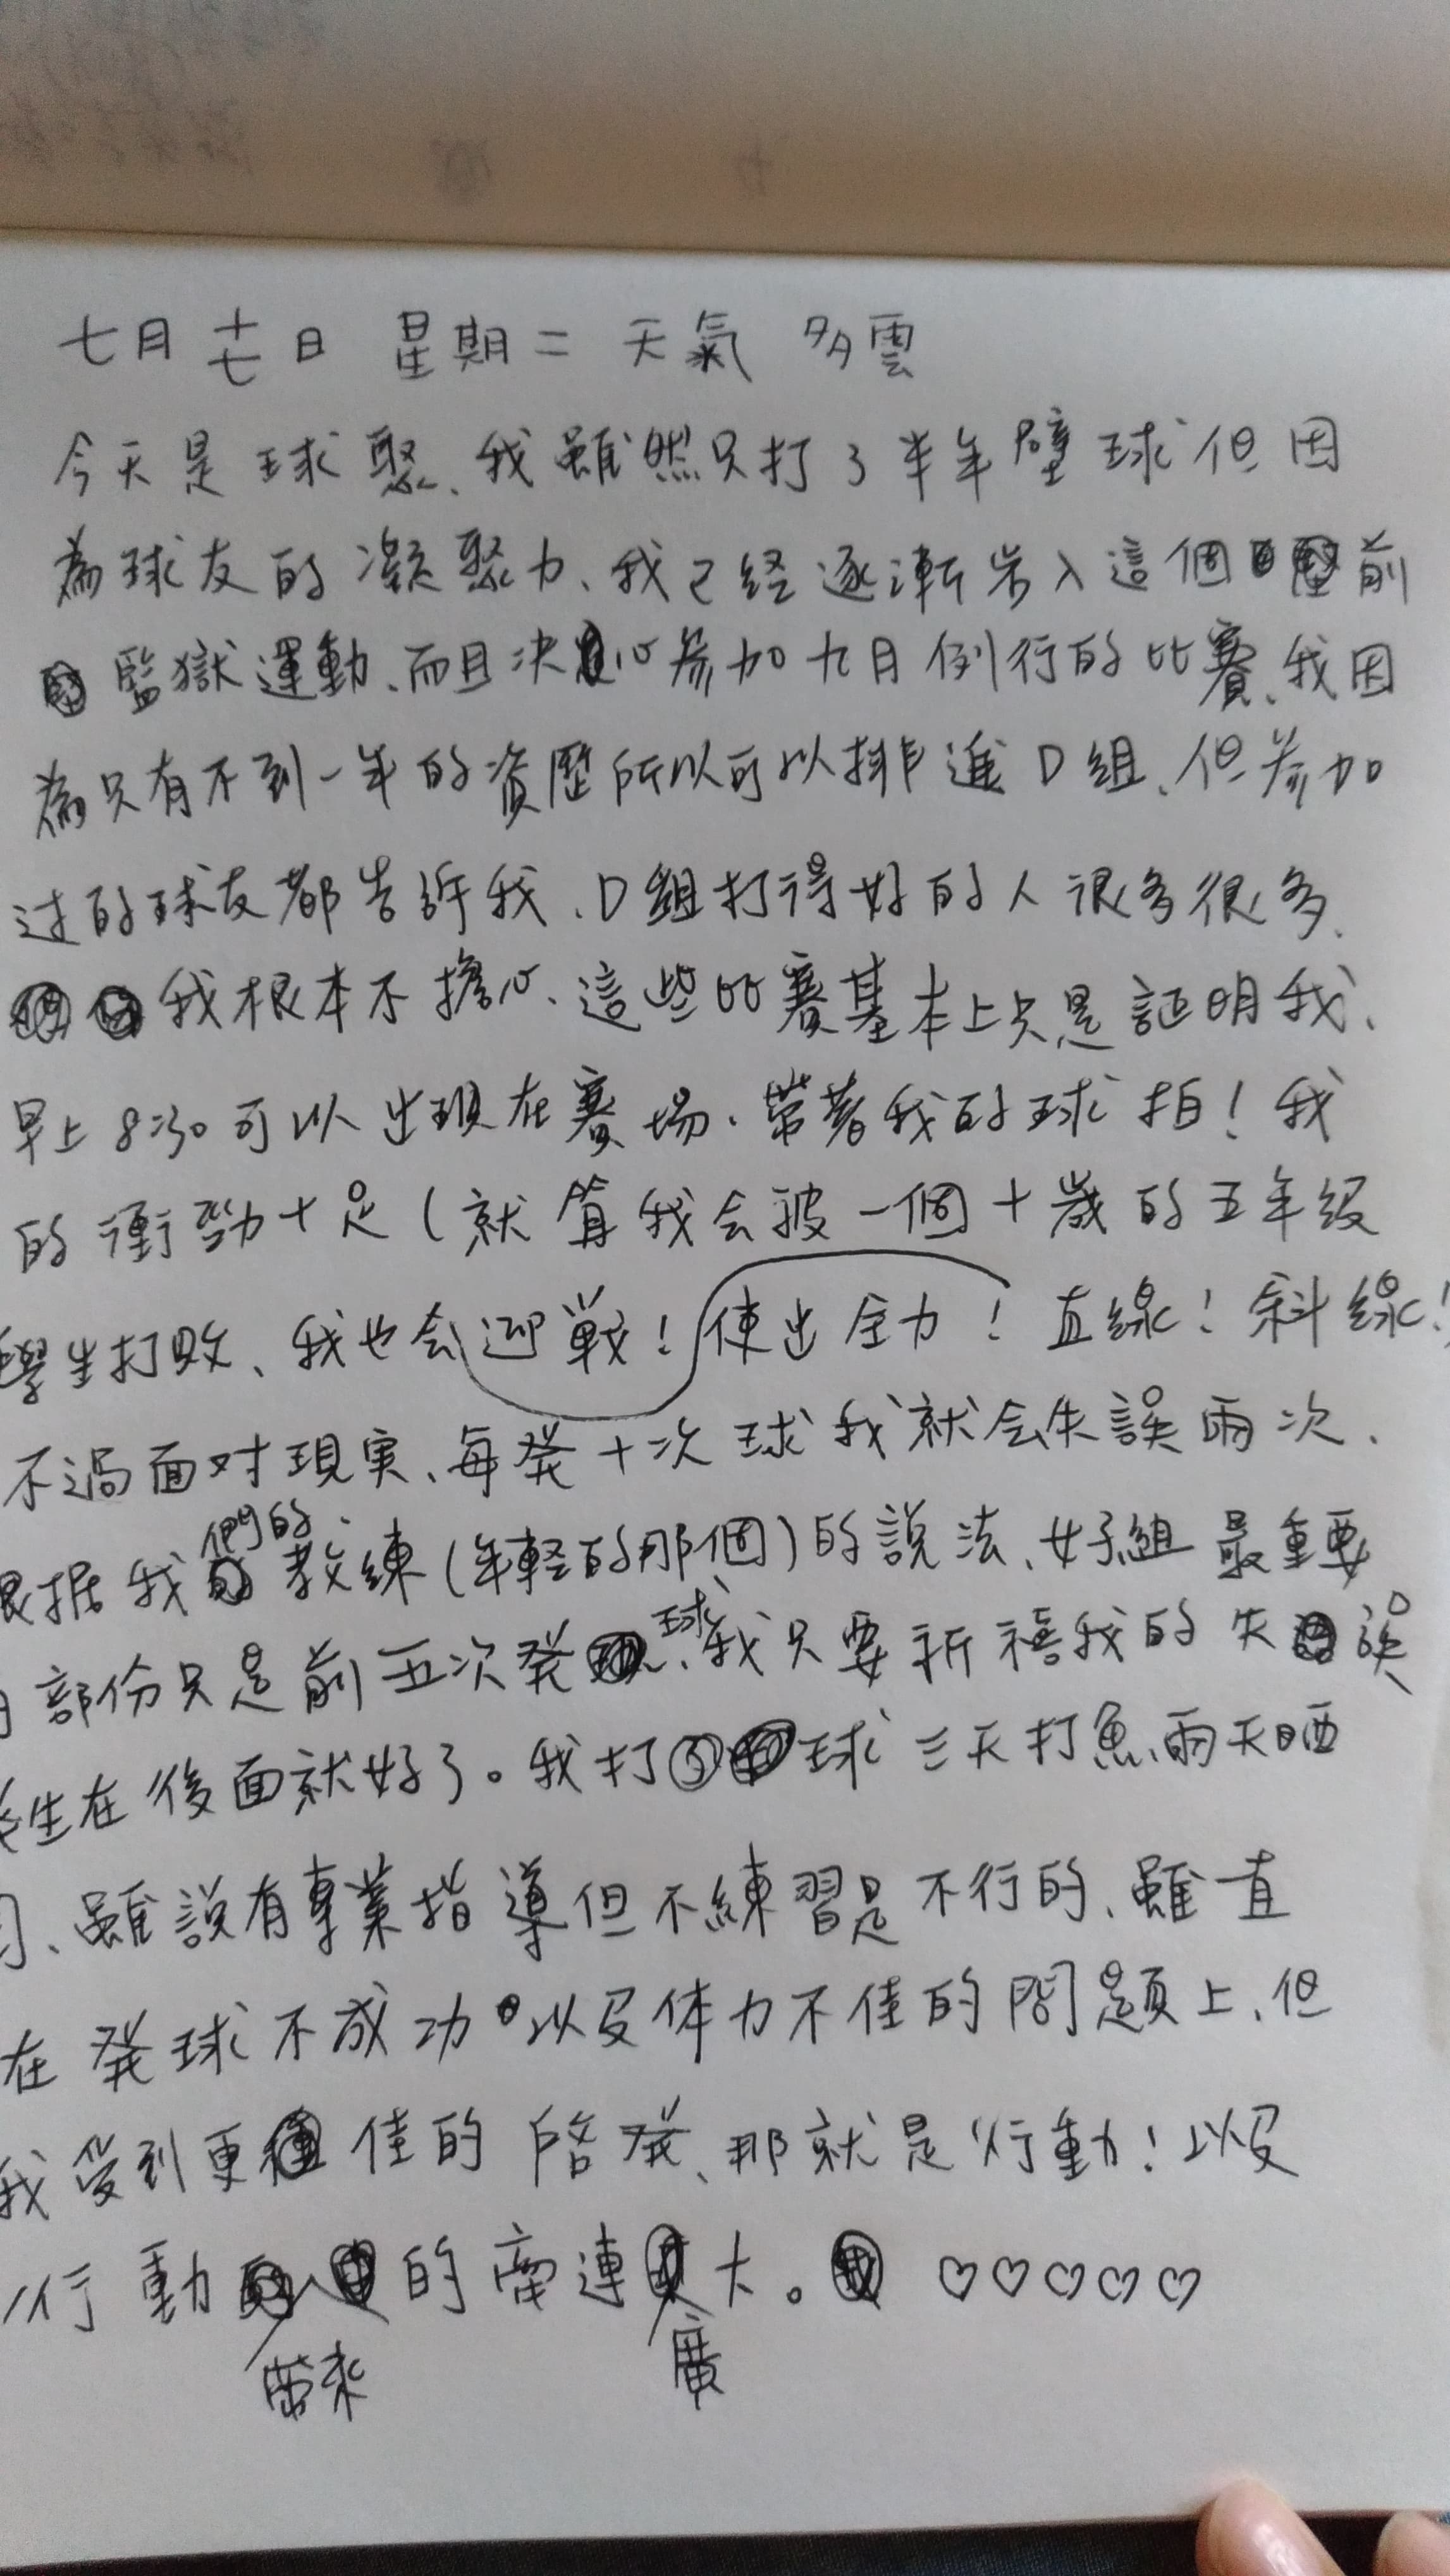 七月十七日 星期二 天氣 多雲
今天是球聚、我雖然只打了半年壁球但因
為球友的凝聚力、我已經逐漸步入這個前
監獄運動、而且決心參加九月例行的比賽、我因
為只有不到一年的資歷所以可以排進D組、但參加
过的球友都告訴我、D組打得好的人很多很多、
我根本不擔心、這些比賽基本上只是証明我、
早上8:30可以出現在賽場、帶著我的球拍！我
的衝勁十足（就算我会被一個十歲的五年級
學生打敗、我也会迎戰！使出全力！直線！斜線！
不過面对現実、每発十次球我就会失誤兩次、
根据我們的教練（年輕的那個）的說法、女子組最重要
部份只是前五次発球、我只要祈禱我的失誤
生在後面就好了。我打球三天打魚、兩天晒
、雖說有專業指導但不練習是不行的、雖一直
在発球不成功以及体力不佳的問題上、但
我受到更佳的啓発、那就是行動！以及
行動帶來的牽連廣大。♡♡♡♡♡